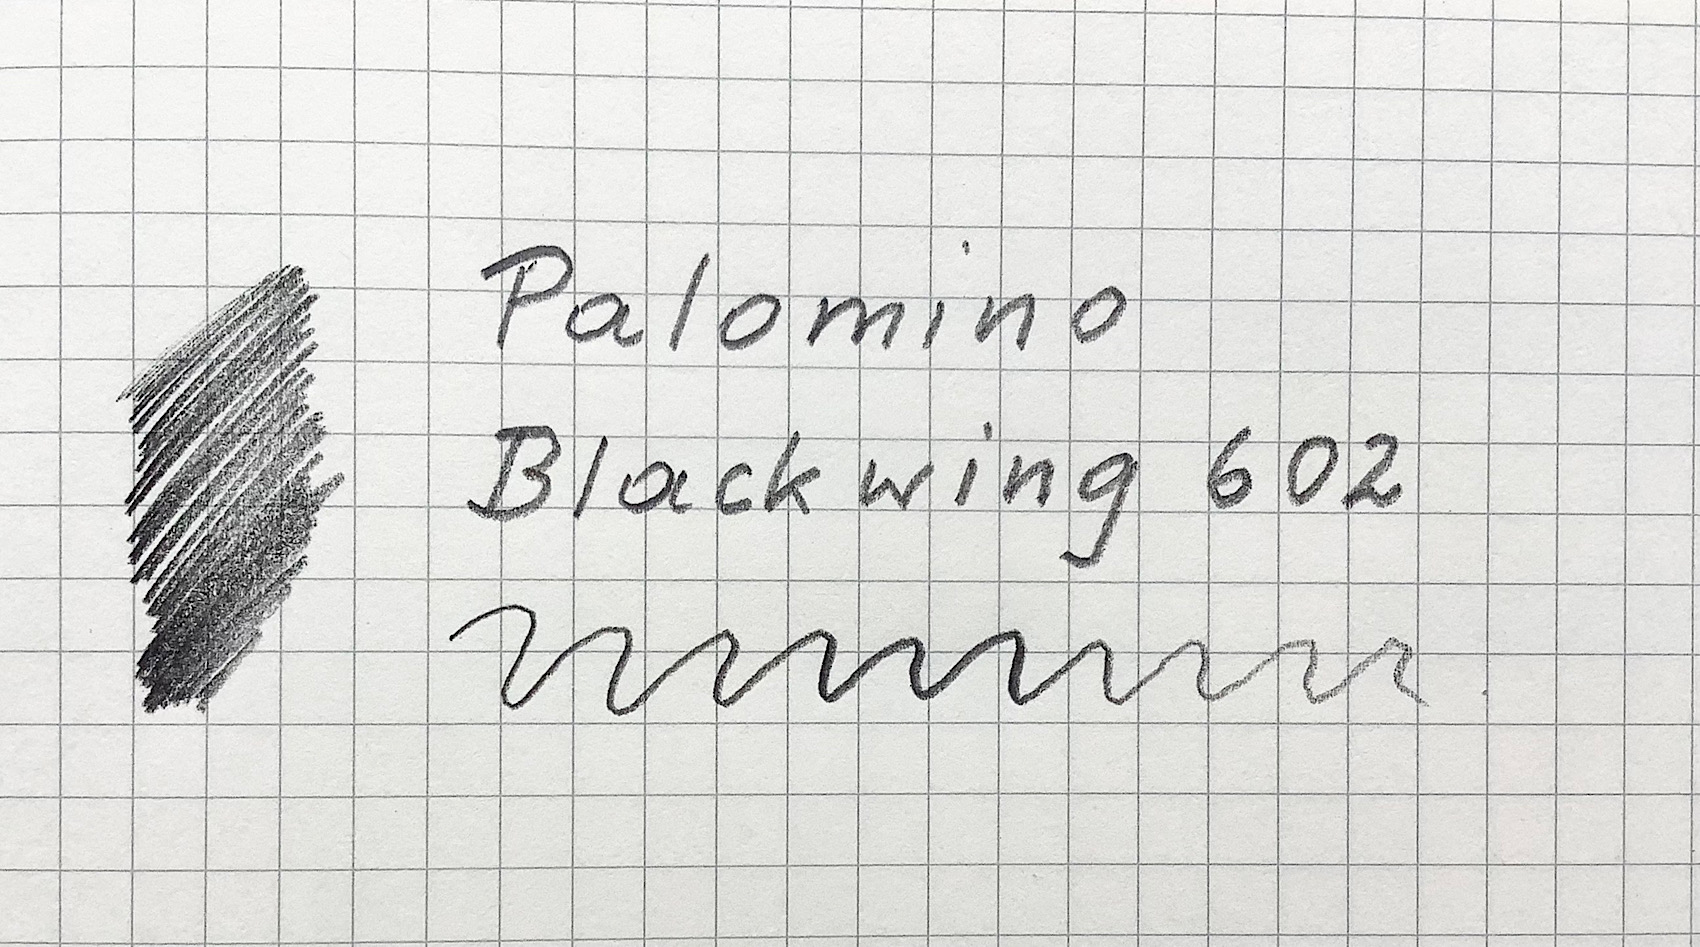 Palomino
Blackwing 602